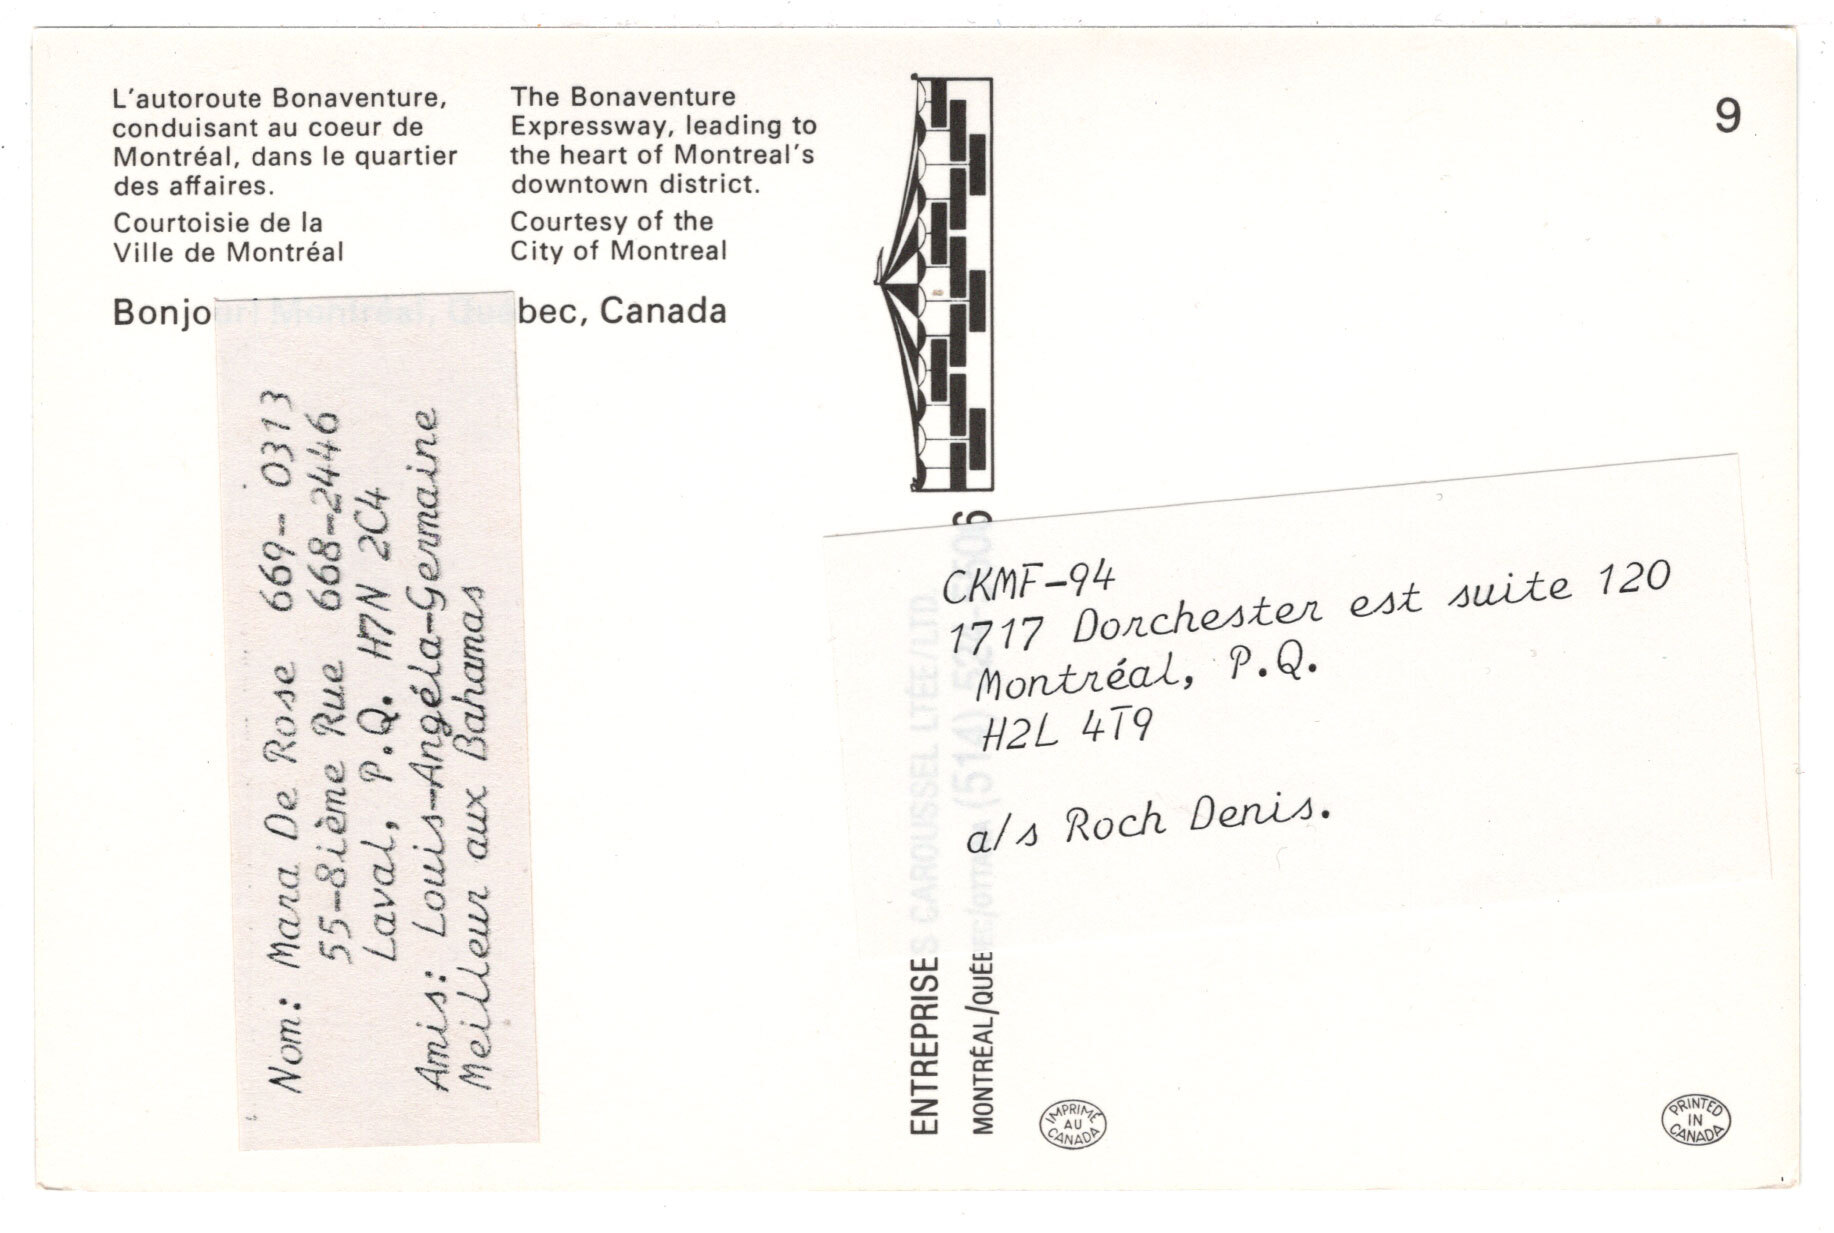 L'autoroute Bonaventure,
conduisant au coeur de
Montréal, dans le quartier
des affaires.
Courtoisie de la
Ville de Montréal
The Bonaventure
Expressway, leading to
the heart of Montreal's
downtown district.
Courtesy of the
City of Montreal
Bonjour Montréal, Québec, Canada
9
Nom: Mara De Rose 669-0313
55-8ième Rue 668-2446
Laval, P.Q. H7N 2C4
Amis: Louis-Angéla-Germaine
Meilleur aux Bahamas
ENTREPRISES CAROUSSEL LTÉE/LTD.
MONTRÉAL/QUÉBEC
(514)
CKMF-94
1717 Dorchester est suite 120
Montréal, P.Q.
H2L 4T9
a/s Roch Denis.
IMPRIMÉ
AU
CANADA
PRINTED
IN
CANADA